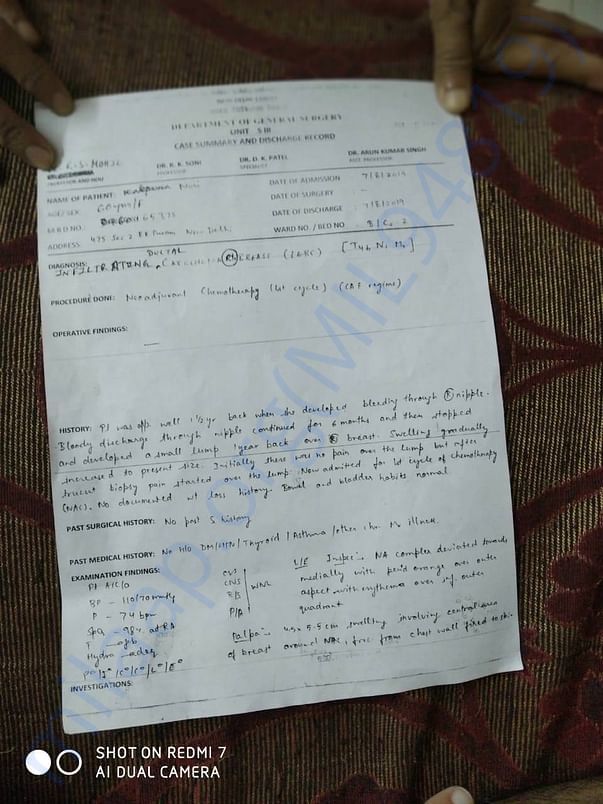 DEPARTMENT OF GENERAL SURGERY
UNIT S III
CASE SUMMARY AND DISCHARGE RECORD
DR. R. K. SONI
DR. D. K. PATEL
DR. ARUN KUMAR SINGH
PROFESSOR AND HOU
SPECIALIST
ASST. PROFESSOR
NAME OF PATIENT:
DATE OF ADMISSION 7/8/2019
AGE/ SEX: 60 yr/F
DATE OF SURGERY -
M R D NO.
DATE OF DISCHARGE 7/8/2019
ADDRESS: 475 Sec 2 RK Puram New Delhi
WARD NO. / BED NO
DIAGNOSIS: INFILTRATING DUCTAL CARCINOMA (Rt) BREAST (LABC) [T4b N1 M0]
PROCEDURE DONE: Neoadjuvant Chemotherapy (1st cycle) (CAF regime)
OPERATIVE FINDINGS: —
HISTORY: Pt was app. well 1½ yr back when she developed bleeding through (R) nipple.
Bloody discharge through nipple continued for 6 months and then stopped
and developed a small lump 1 year back over (R) breast. Swelling gradually
increased to present size. Initially there was no pain over the lump but after
trucut biopsy pain started over the lump. Now admitted for 1st cycle of chemotherapy
(NAC). No documented wt loss history. Bowel and bladder habits normal
PAST SURGICAL HISTORY: No past S history
PAST MEDICAL HISTORY: No H/o DM/HTN/Thyroid/Asthma/other chr. M. illness.
EXAMINATION FINDINGS:
Pt A/C/O
BP - 110/70 mmHg
P - 74 bpm
SpO2 98% at RA
T - afeb
Hydra - adeq
P°/I°/C°/C°/L°/E°
CVS
CNS
R/S
P/A
WNL
L/E Inspec:- NA complex deviated towards
medially with peud orange over outer
aspect with erythema over inf. outer
quadrant
Palpa:- 4.5 x 5.5 cm swelling involving central area
of breast around NAC, free from chest wall fixed to skin
INVESTIGATIONS:
milaap.org(MIL94819)
SHOT ON REDMI 7
AI DUAL CAMERA